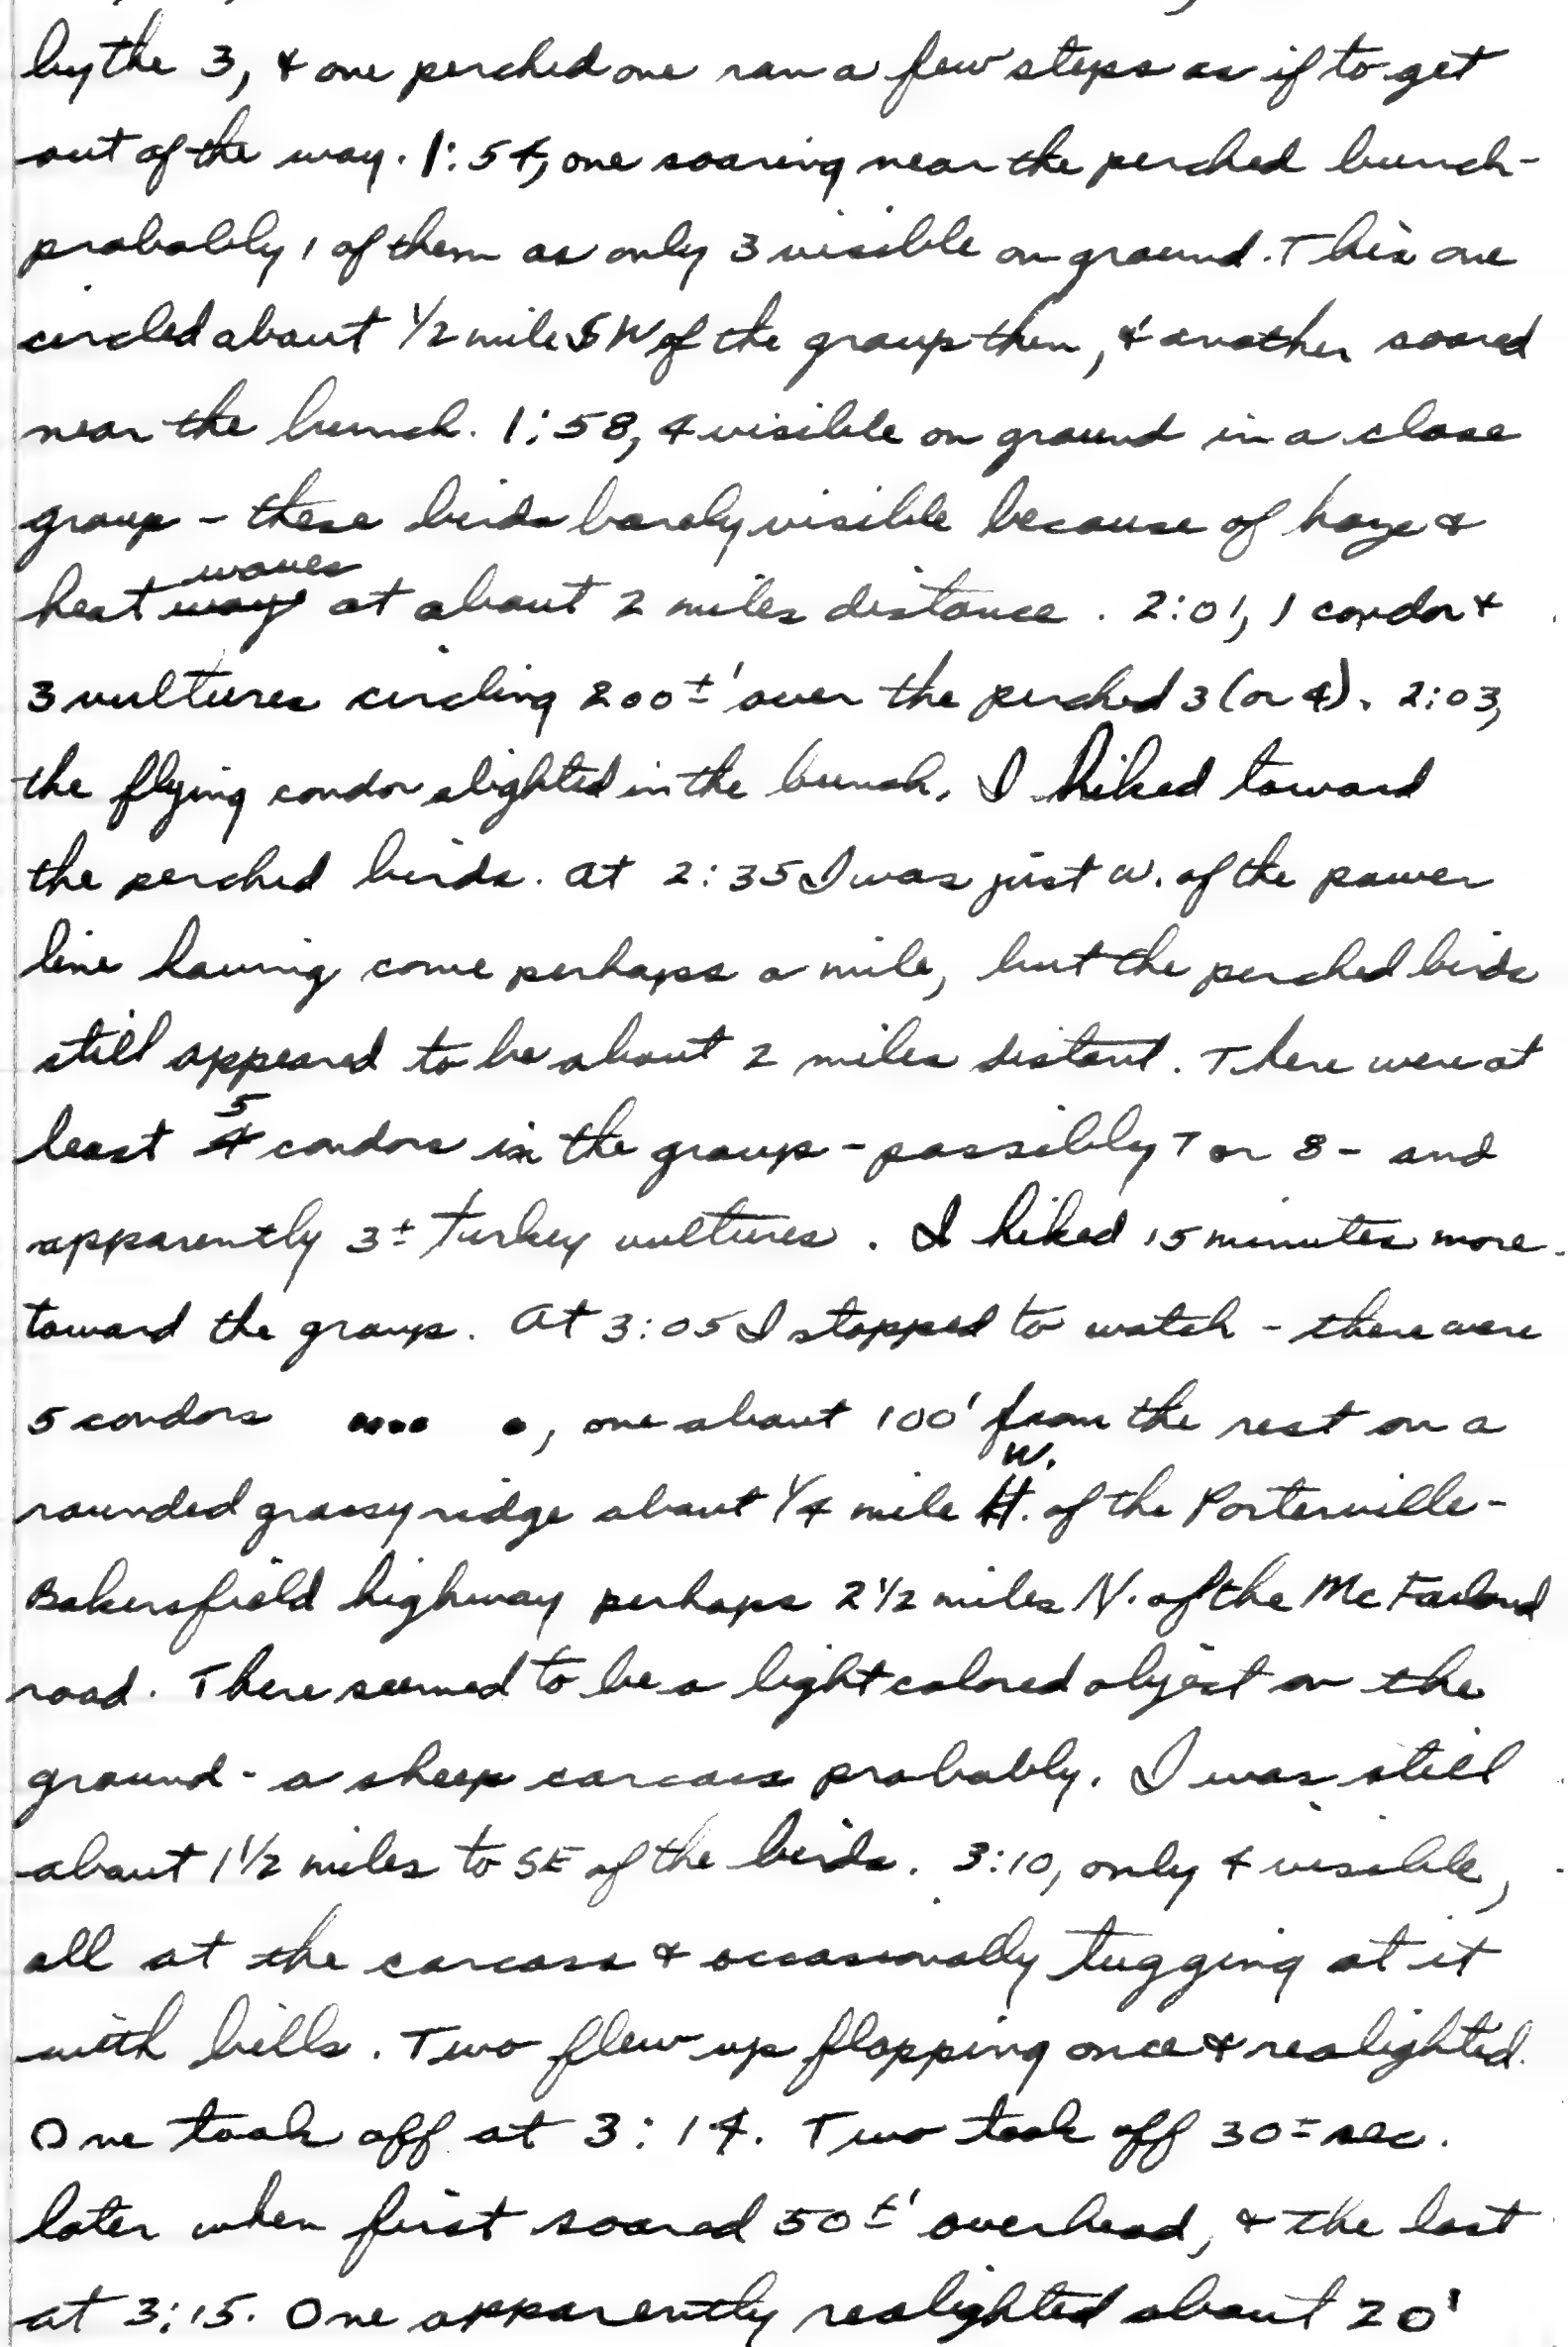 by the 3, & one perched one ran a few steps as if to get
out of the way. 1:54, one soaring near the perched bunch -
probably 1 of them as only 3 visible on ground. This one
circled about 1/2 mile SW of the group then, & another soared
near the bunch. 1:58, 4 visible on ground in a close
group - these birds barely visible because of haze &
heat waves at about 2 miles distance. 2:01, 1 condor &
3 vultures circling 200±' over the perched 3 (or 4). 2:03,
the flying condor alighted in the bunch. I hiked toward
the perched birds. At 2:35 I was just W. of the power
line having come perhaps a mile, but the perched birds
still appeared to be about 2 miles distant. There were at
least 5 condors in the group - possibly 7 or 8 - and
apparently 3± turkey vultures. I hiked 15 minutes more
toward the group. At 3:05 I stopped to watch - there were
5 condors •••• •, one about 100' from the rest on a
rounded grassy ridge about 1/4 mile W. of the Porterville-
Bakersfield highway perhaps 2 1/2 miles N. of the McFarland
road. There seemed to be a light colored object on the
ground - a sheep carcass probably. I was still
about 1 1/2 miles to SE of the birds. 3:10, only 4 visible,
all at the carcass & occasionally tugging at it
with bills. Two flew up flapping once & realighted.
One took off at 3:14. Two took off 30± sec.
later when first soared 50±' overhead, & the last
at 3:15. One apparently realighted about 20'